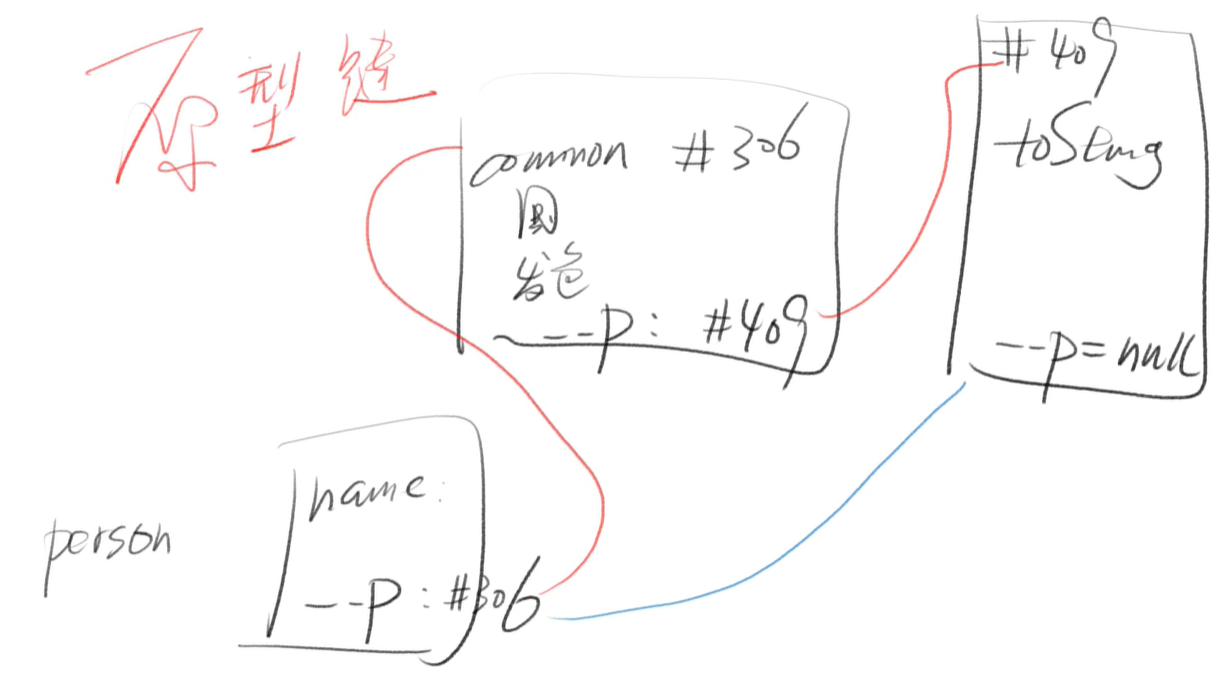 原型链
common #306
国
发色
__p: #409
#409
toString
__p=null
person
name:
__p:#306